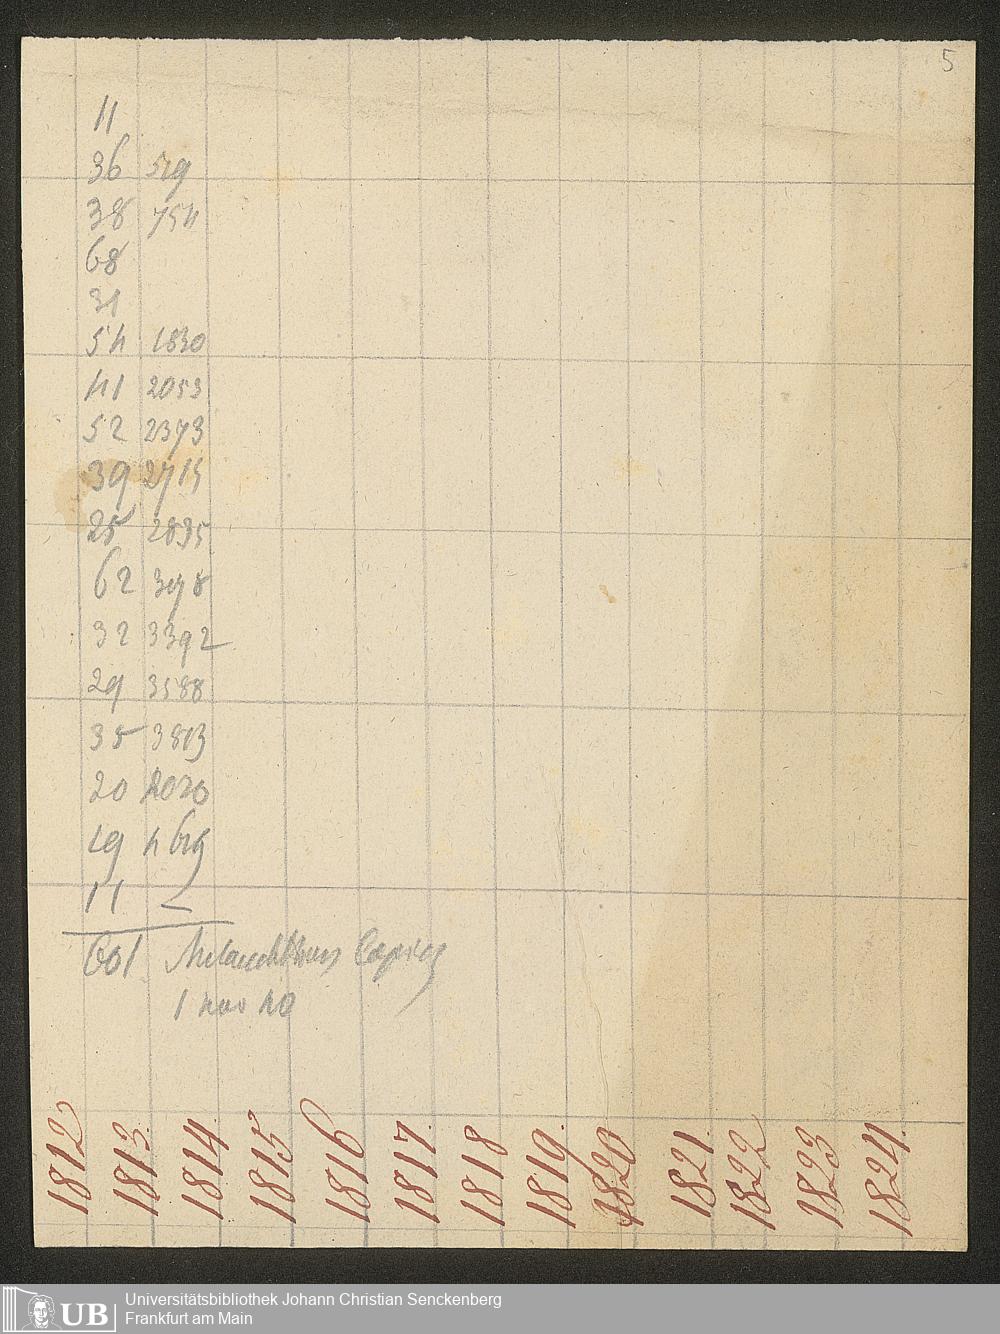 5
11
36 519
38 754
68
31
54 1830
41 2053
52 2373
39 2715
25 2895
62 3078
32 3392
29 3588
35 3813
20 4020
19 4619
11
601 Melanchthons
1 nov 40
1812
1813.
1814.
1815
1816
1817.
1818
1819.
1820
1821.
1822
1823
1824.
UB
Universitätsbibliothek Johann Christian Senckenberg
Frankfurt am Main